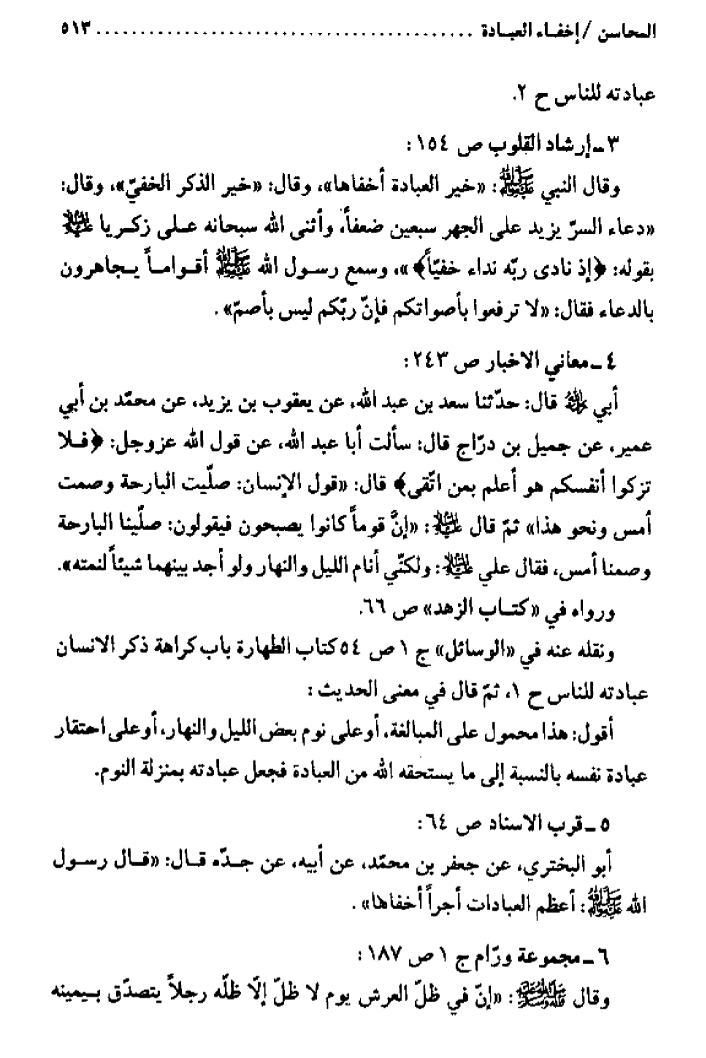 المحاسن / إخفاء العبادة ........................................ ٥١٣
عبادته للناس ح ٢.
٣ ـ إرشاد القلوب ص ١٥٤:
وقال النبي ﷺ: «خير العبادة أخفاها»، وقال: «خير الذكر الخفيّ»، وقال:
«دعاء السرّ يزيد على الجهر سبعين ضعفاً، وأثنى الله سبحانه على زكريا عليه السلام
بقوله: ﴿إذ نادى ربّه نداء خفيّاً﴾»، وسمع رسول الله ﷺ أقواماً يجاهرون
بالدعاء فقال: «لا ترفعوا بأصواتكم فإنّ ربّكم ليس بأصمّ».
٤ ـ معاني الاخبار ص ٢٤٣:
أبي رحمه الله قال: حدّثنا سعد بن عبد الله، عن يعقوب بن يزيد، عن محمّد بن أبي
عمير، عن جميل بن درّاج قال: سألت أبا عبد الله، عن قول الله عزوجل: ﴿فلا
تزكوا أنفسكم هو أعلم بمن اتّقى﴾ قال: «قول الإنسان: صلّيت البارحة وصمت
أمس ونحو هذا» ثمّ قال عليه السلام: «إنَّ قوماً كانوا يصبحون فيقولون: صلّينا البارحة
وصمنا أمس، فقال علي عليه السلام: ولكنّي أنام الليل والنهار ولو أجد بينهما شيئاً لنمته».
ورواه في «كتاب الزهد» ص ٦٦.
ونقله عنه في «الوسائل» ج ١ ص ٥٤ كتاب الطهارة باب كراهة ذكر الانسان
عبادته للناس ح ١، ثمّ قال في معنى الحديث:
أقول: هذا محمول على المبالغة، أو على نوم بعض الليل والنهار، أو على احتقار
عبادة نفسه بالنسبة إلى ما يستحقه الله من العبادة فجعل عبادته بمنزلة النوم.
٥ ـ قرب الاسناد ص ٦٤:
أبو البختري، عن جعفر بن محمّد، عن أبيه، عن جدّه قال: «قال رسول
الله ﷺ: أعظم العبادات أجراً أخفاها».
٦ ـ مجموعة ورّام ج ١ ص ١٨٧:
وقال ﷺ: «إنّ في ظلّ العرش يوم لا ظلّ إلّا ظلّه رجلاً يتصدّق بيمينه